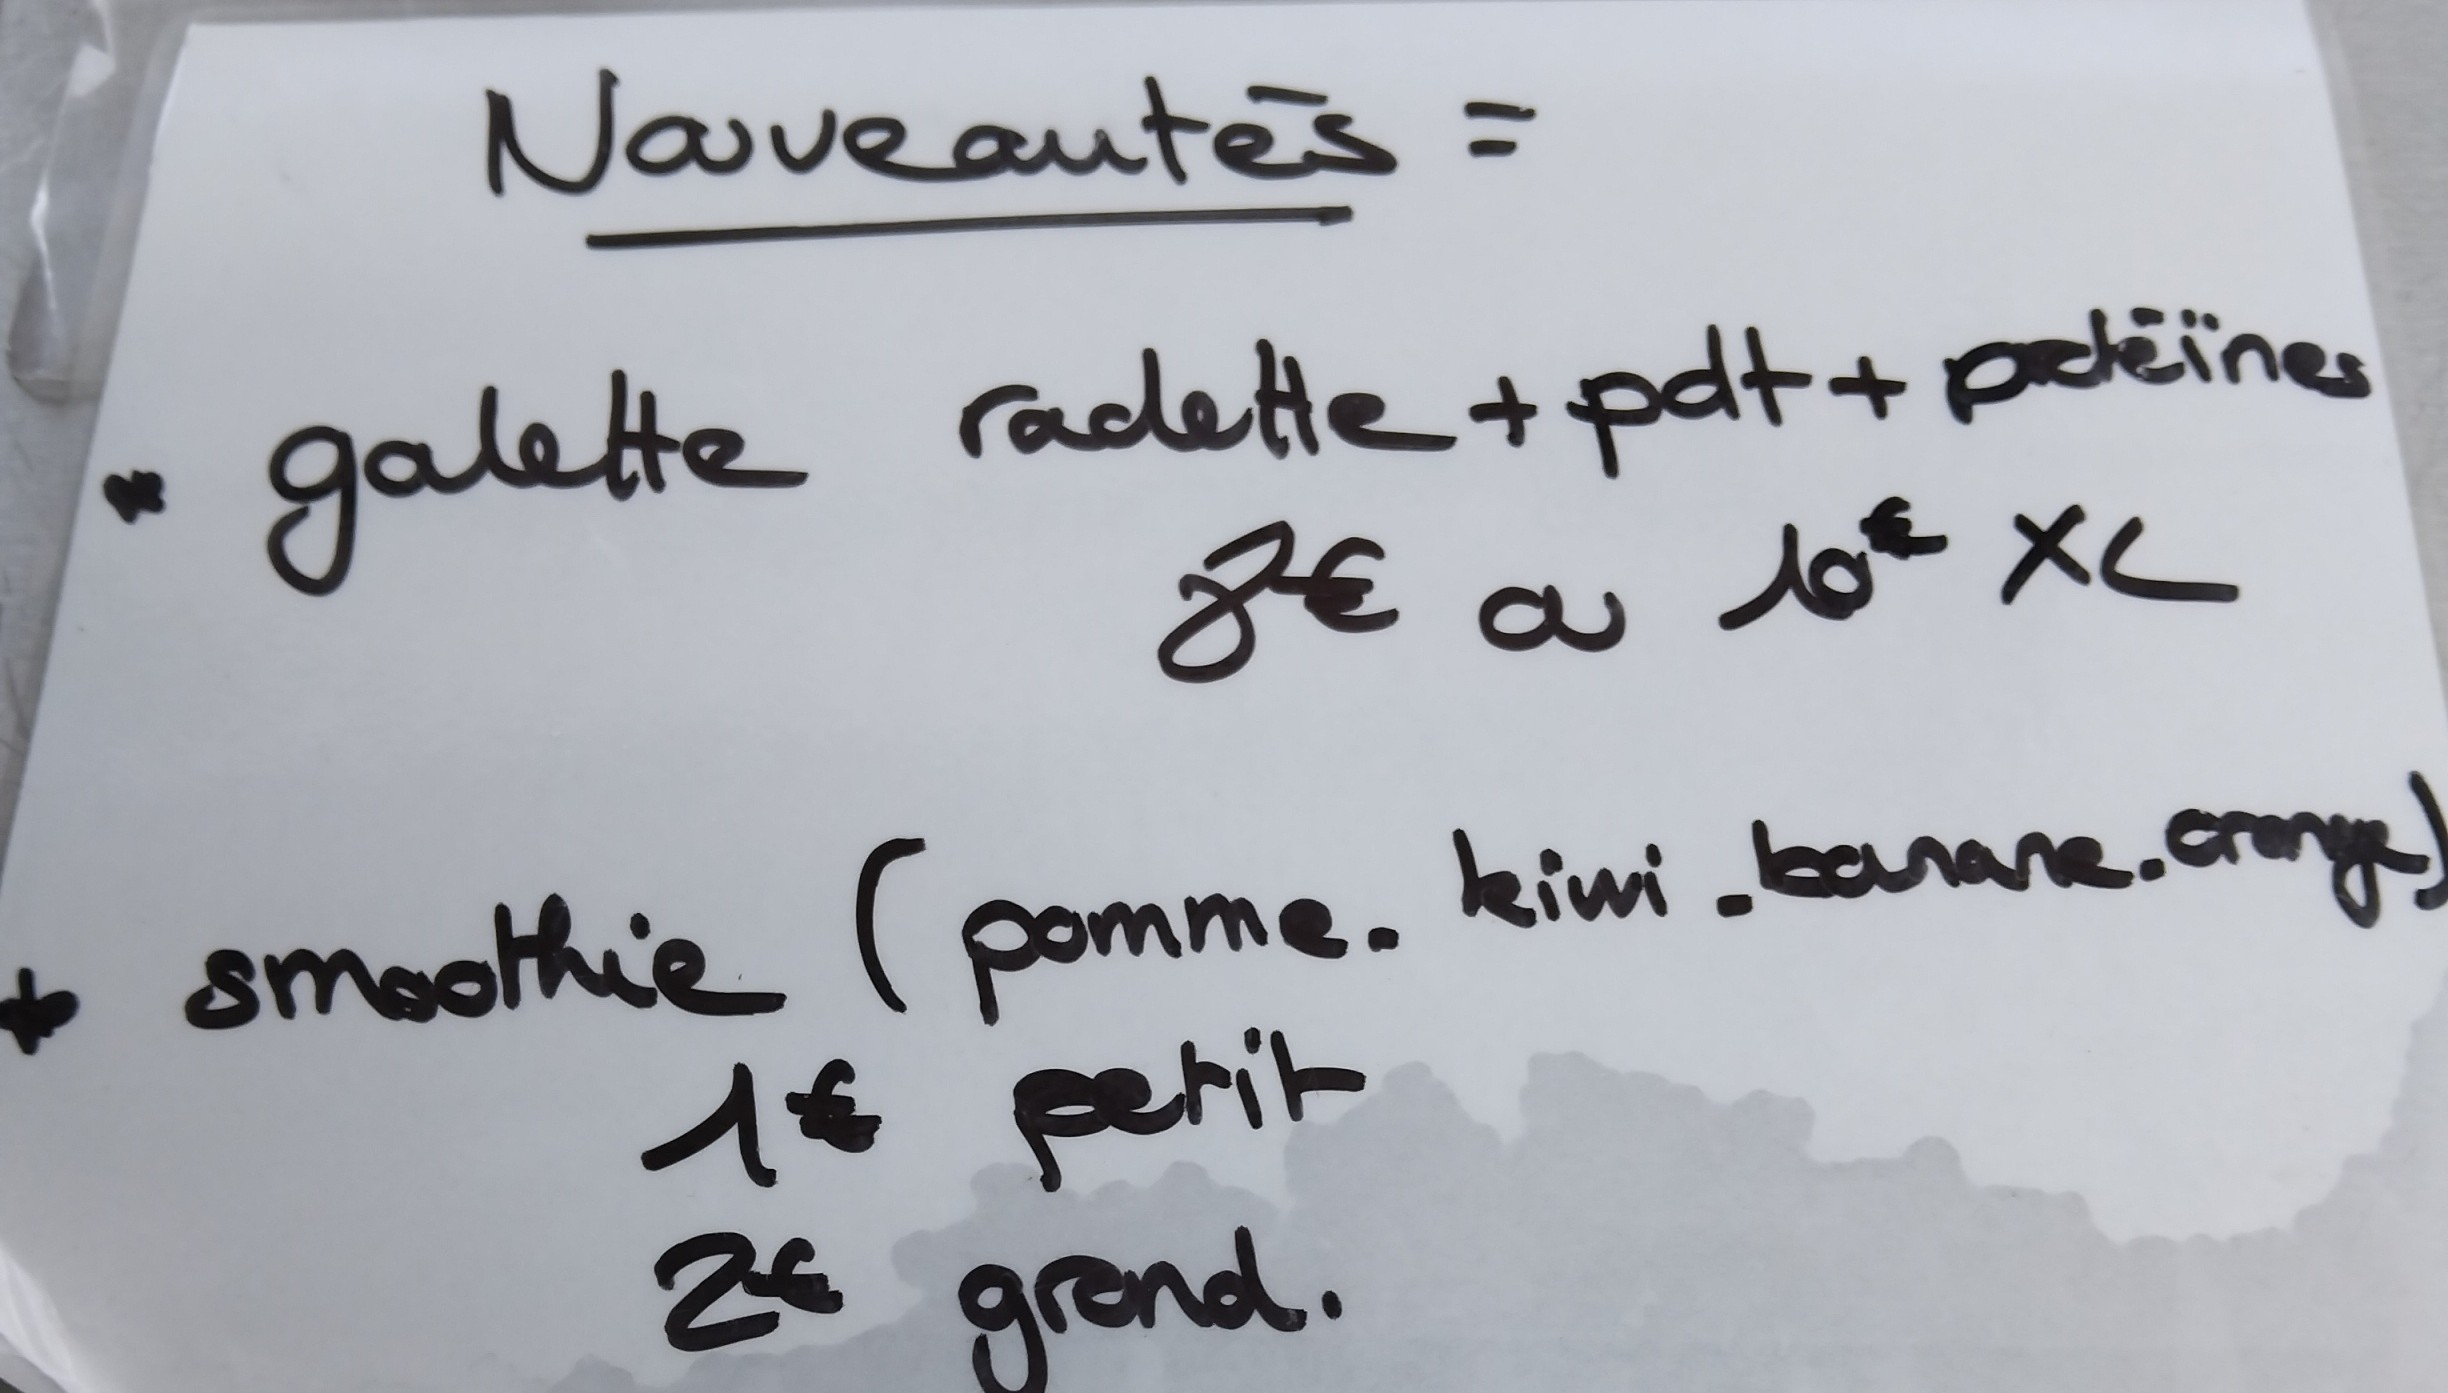 Nouveautés =
* galette raclette + pdt + protéïnes
8€ ou 10€ XL
* smoothie (pomme. kiwi. banane. orange)
1€ petit
2€ grand.